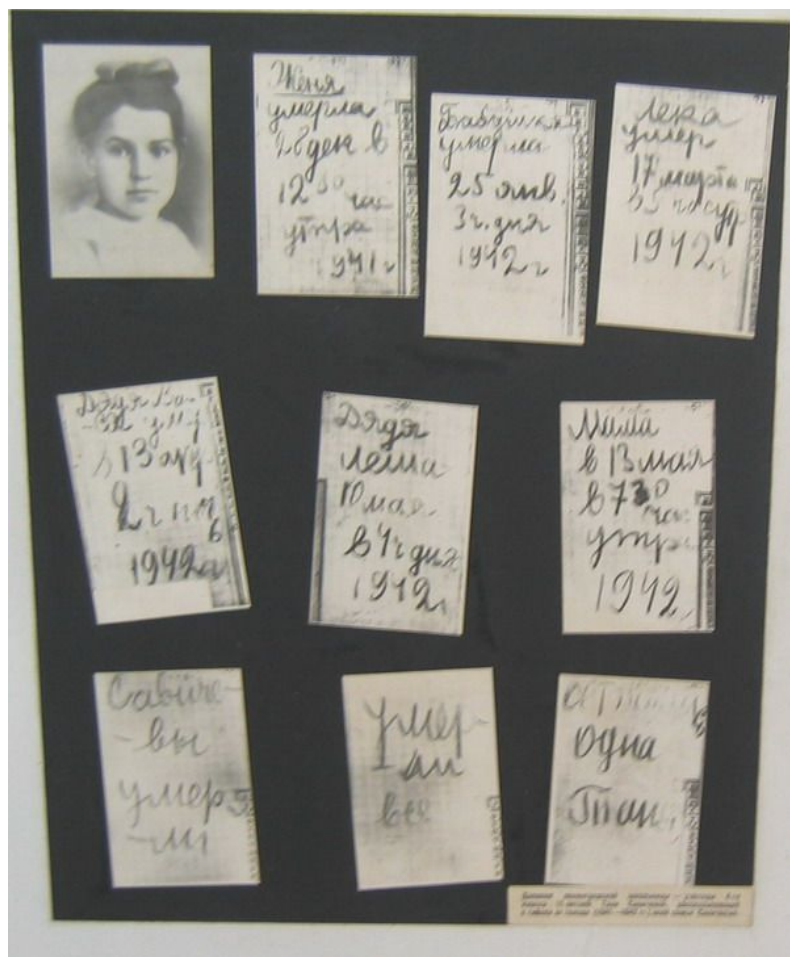 Женя
умерла
28 дек в
12 30 час
утра
1941 г
Бабушка
умерла
25 янв.
3 ч. дня
1942 г
Лека
умер
17 марта
в 5 час утр
1942 г
Дядя Ва-
-ся умер
в 13 апр
2 ч ноч
1942 г
Дядя
Леша
10 мая
в 4 ч дня
1942 г
Мама
в 13 мая
в 7 30
час
утра
1942
Савиче-
-вы
умер
-ли
умер-
-ли
все
Осталась
одна
Таня